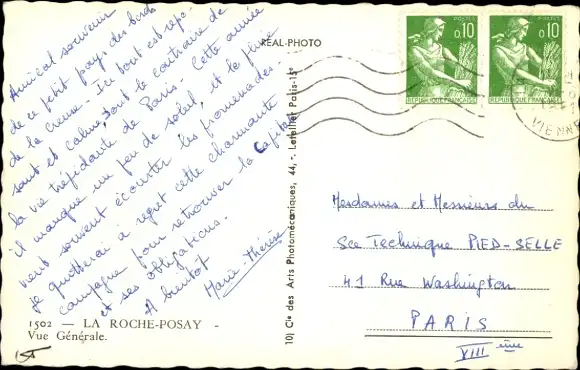 Amical souvenir
de ce petit pays des bords
de la Creuse. Ici tout est repo-
sant et calme, tout le contraire de
la vie trépidante de Paris. Cette année
il manque un peu de soleil, et la pluie
vient souvent écourter les promenades.
Je quitterai à regret cette charmante
campagne pour retrouver la Capitale
et ses obligations.
A bientôt
Marie Thérèse
1502 — LA ROCHE-POSAY -
Vue Générale.
REAL-PHOTO
10) Cie des Arts Photomécaniques, 44, -. Letellier Paris-15e
POSTES
0,10
REPUBLIQUE FRANÇAISE
POSTES
0,10
REPUBLIQUE FRANÇAISE
VIENNE
Mesdames et Messieurs du
Sce Technique PIED-SELLE
41 Rue Washington
PARIS
VIIIème